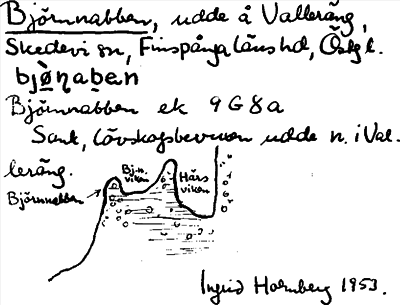 Björnnabben, udde å Vallerång,
Skedevi sn, Finspånga läns hd, Östg l.
bjø̀ṇaḅen
Björnnabben ek 9G8a
Sank, lövskogsbevuxen udde n. i Val-
leräng.
Bj.n.
viken
Hårs
viken
Björnnabben
Ingrid Harnberg 1953.